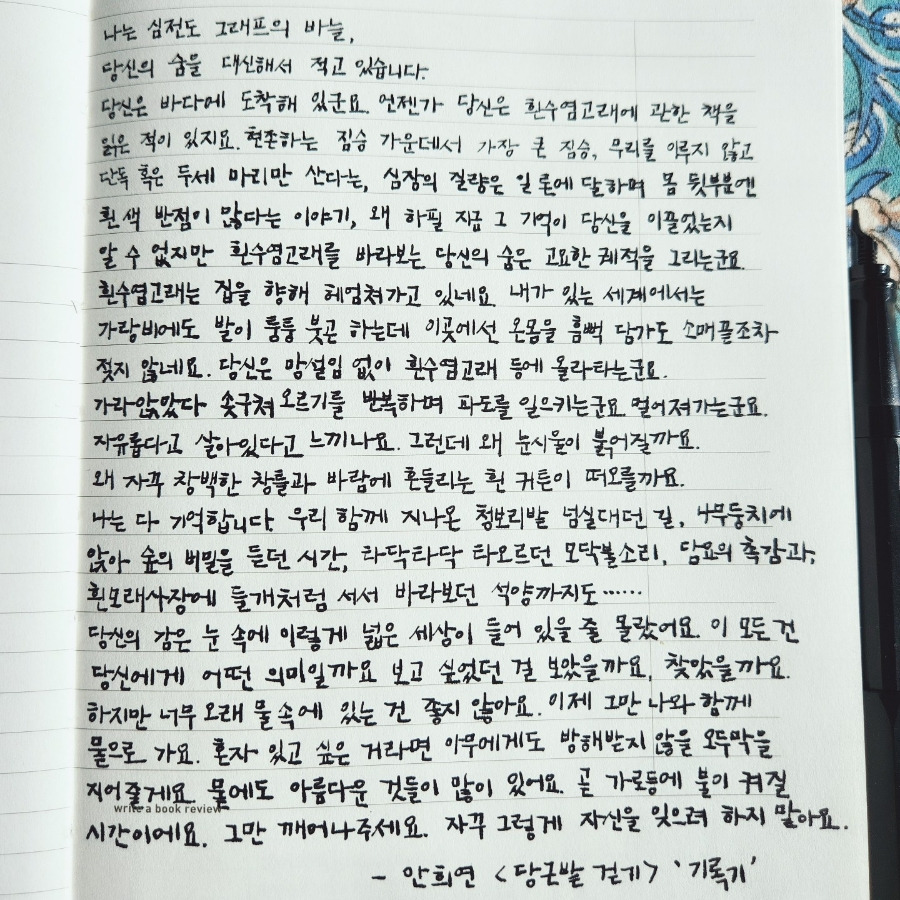 나는 심전도 그래프의 바늘,
당신의 숨을 대신해서 적고 있습니다.
당신은 바다에 도착해 있군요. 언젠가 당신은 흰수염고래에 관한 책을
읽은 적이 있지요. 현존하는 짐승 가운데서 가장 큰 짐승, 무리를 이루지 않고
단독 혹은 두세 마리만 산다는, 심장의 질량은 일 톤에 달하며 몸 뒷부분엔
흰 색 반점이 많다는 이야기, 왜 하필 지금 그 기억이 당신을 이끌었는지
알 수 없지만 흰수염고래를 바라보는 당신의 숨은 고요한 궤적을 그리는군요.
흰수염고래는 집을 향해 헤엄쳐가고 있네요. 내가 있는 세계에서는
가랑비에도 발이 퉁퉁 붓곤 하는데 이곳에선 온몸을 흠뻑 담가도 소매끝조차
젖지 않네요. 당신은 망설임 없이 흰수염고래 등에 올라타는군요.
가라앉았다 솟구쳐 오르기를 반복하며 파도를 일으키는군요 멀어져가는군요.
자유롭다고 살아있다고 느끼나요. 그런데 왜 눈시울이 붉어질까요.
왜 자꾸 창백한 창틀과 바람에 흔들리는 흰 커튼이 떠오를까요.
나는 다 기억합니다. 우리 함께 지나온 청보리밭 넘실대던 길, 나무둥치에
앉아 숲의 비밀을 듣던 시간, 타닥타닥 타오르던 모닥불소리, 담요의 촉감과,
흰모래사장에 들개처럼 서서 바라보던 석양까지도……
당신의 감은 눈 속에 이렇게 넓은 세상이 들어 있을 줄 몰랐어요. 이 모든 건
당신에게 어떤 의미일까요 보고 싶었던 걸 보았을까요, 찾았을까요.
하지만 너무 오래 물 속에 있는 건 좋지 않아요. 이제 그만 나와 함께
뭍으로 가요. 혼자 있고 싶은 거라면 아무에게도 방해받지 않을 오두막을
지어줄게요. 뭍에도 아름다운 것들이 많이 있어요. 곧 가로등에 불이 켜질
write a book review
시간이에요. 그만 깨어나주세요. 자꾸 그렇게 자신을 잊으려 하지 말아요.
- 안희연 <당근밭 걷기> '기록기'